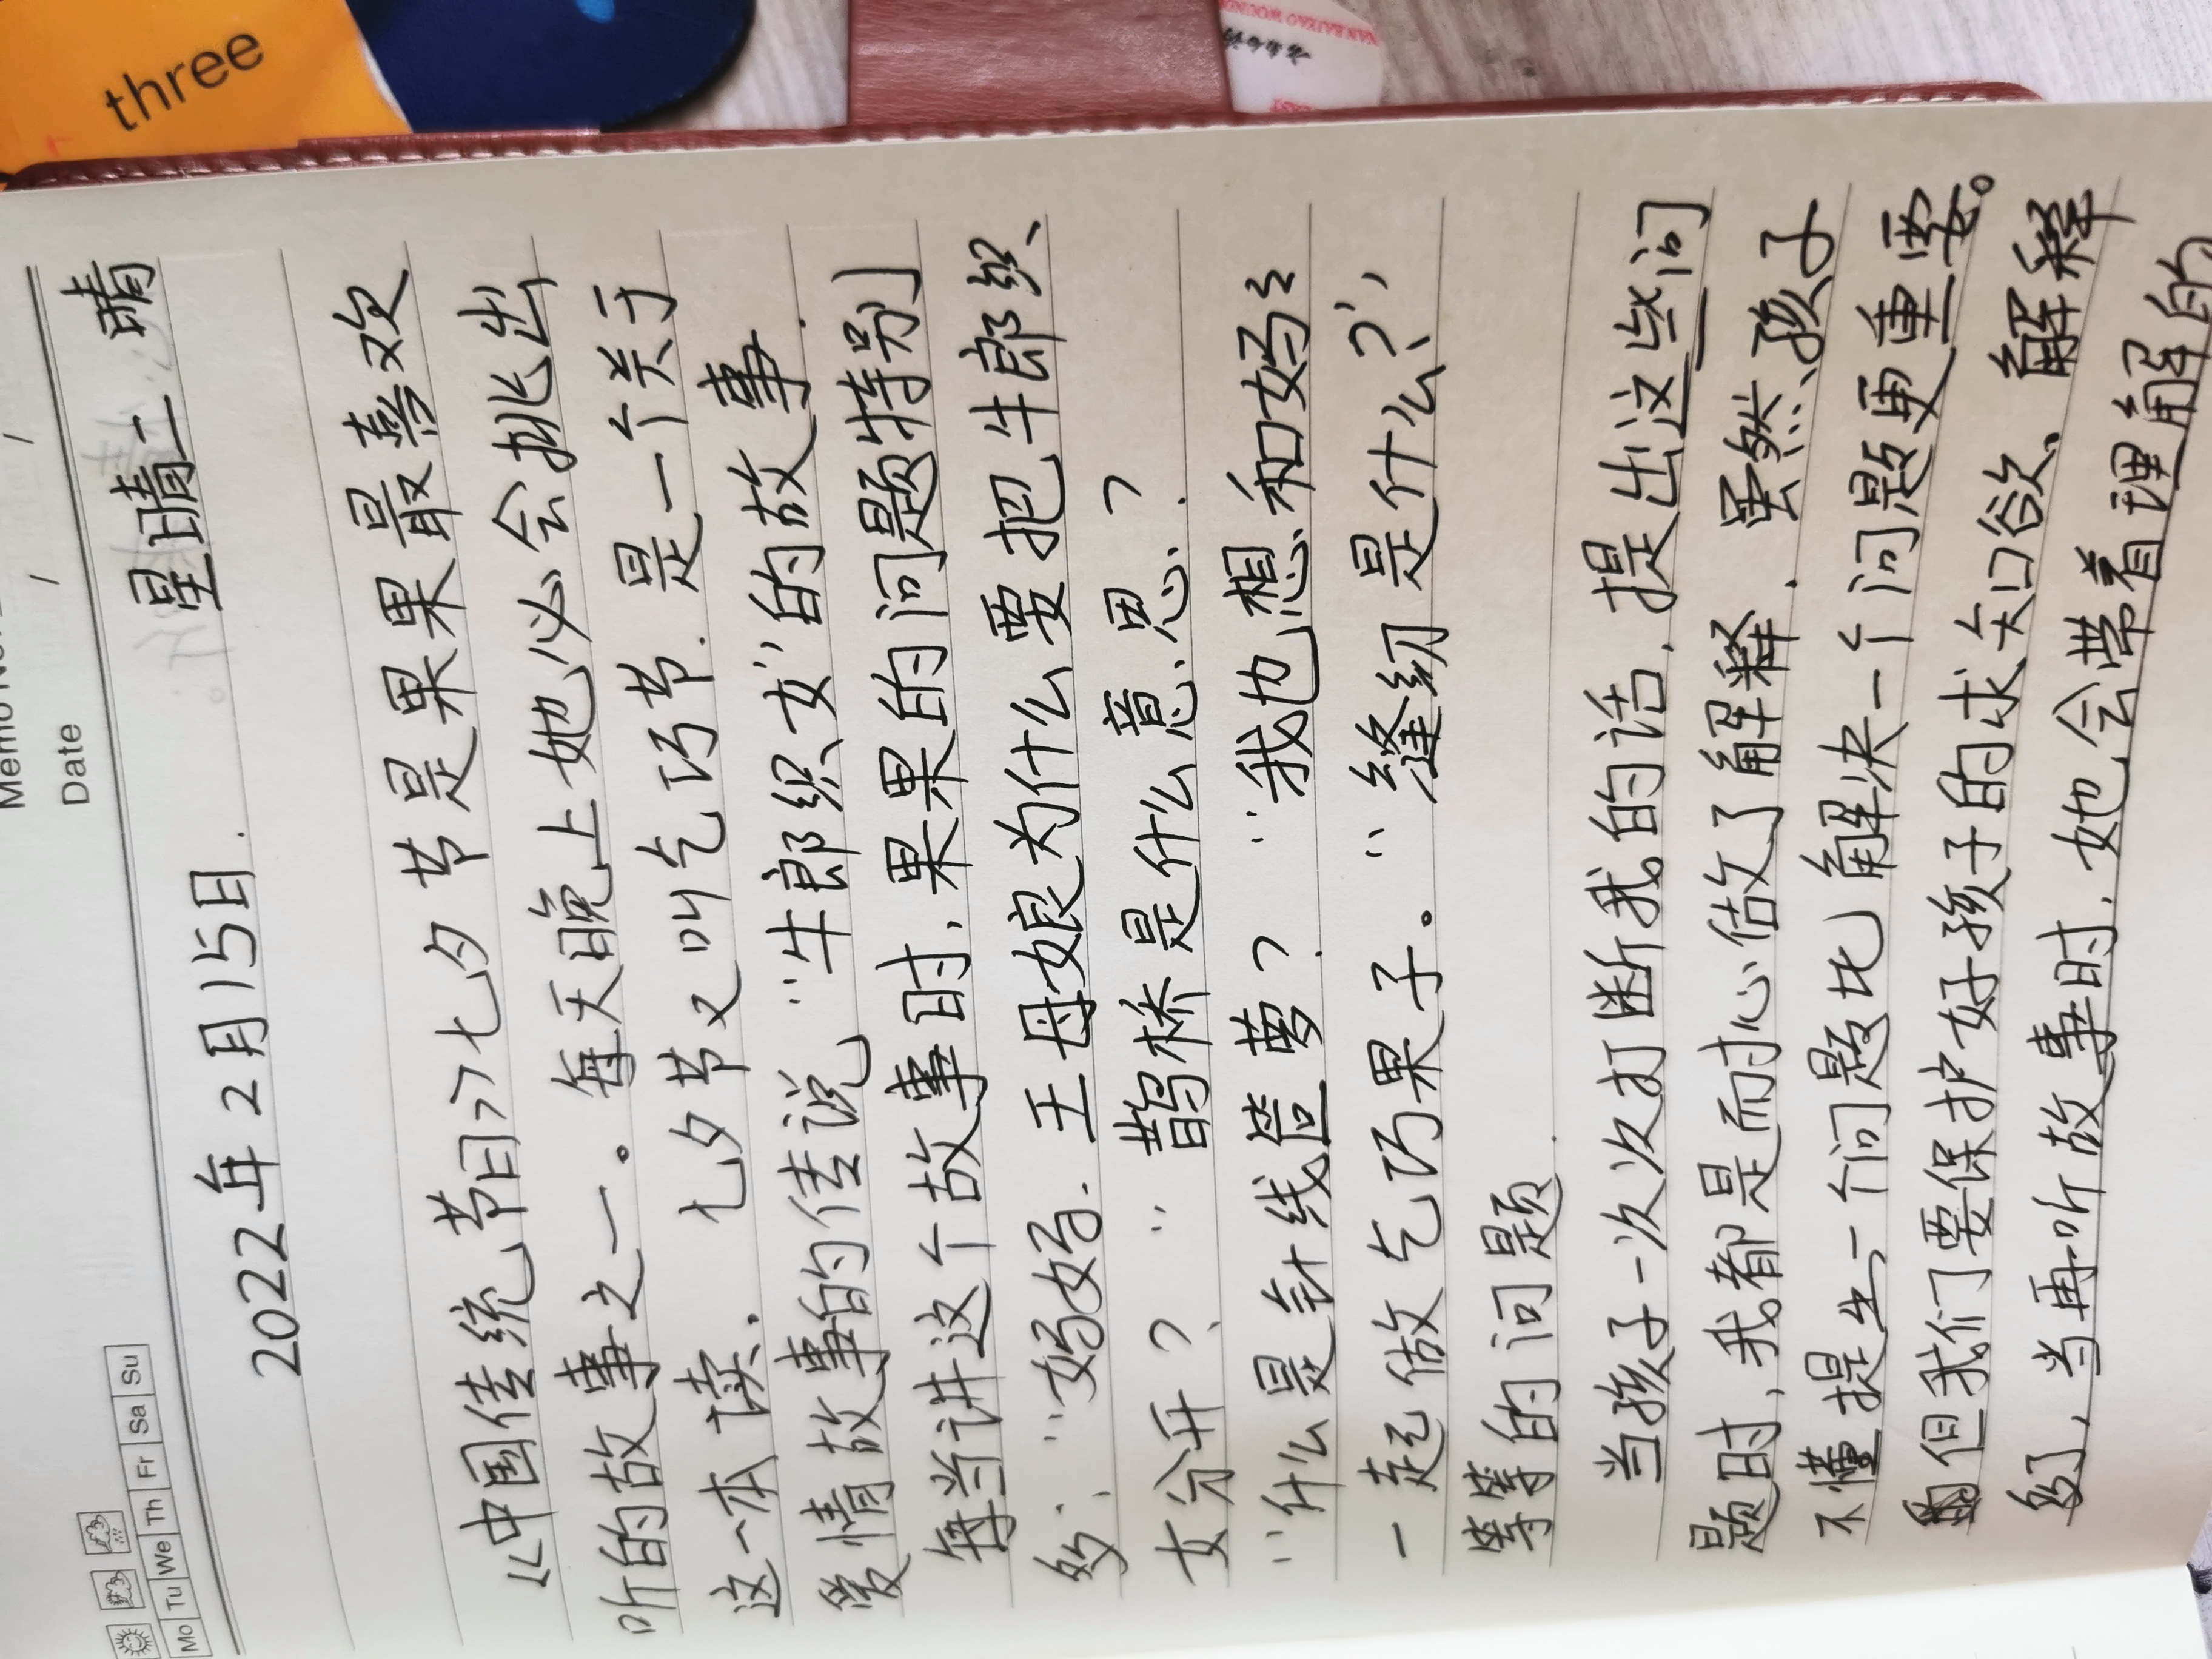 three
Date / /
Mo Tu We Th Fr Sa Su
2022年2月15日. 星晴二 晴
《中国传统节日》七夕节是果果最喜欢
听的故事之一。每天晚上她必会挑出
这一本读. 七夕节又叫乞巧节. 是一个关于
爱情故事的传说“牛郎织女”的故事.
每当讲这个故事时,果果的问题特别
多:“妈妈. 王母娘为什么要把牛郎织、
女分开?“ 鹊桥是什么意思?
“什么是针线笸萝? “我也想和妈妈
一起做乞巧果子。“缝纫是什么?”,
等等的问题.
当孩子一次次打断我的话,提出这些问
题时,我都是耐心做了解释. 虽然孩子
不懂提出一个问题比解决一个问题更重要。
但我们要保护好孩子的求知欲、解释
多了,当再听故事时,她会带着理解的